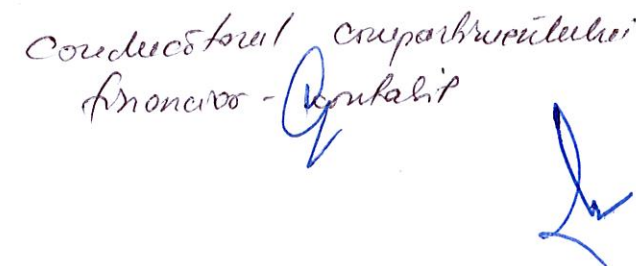 Conducătorul compartimentului
financiar-contabil